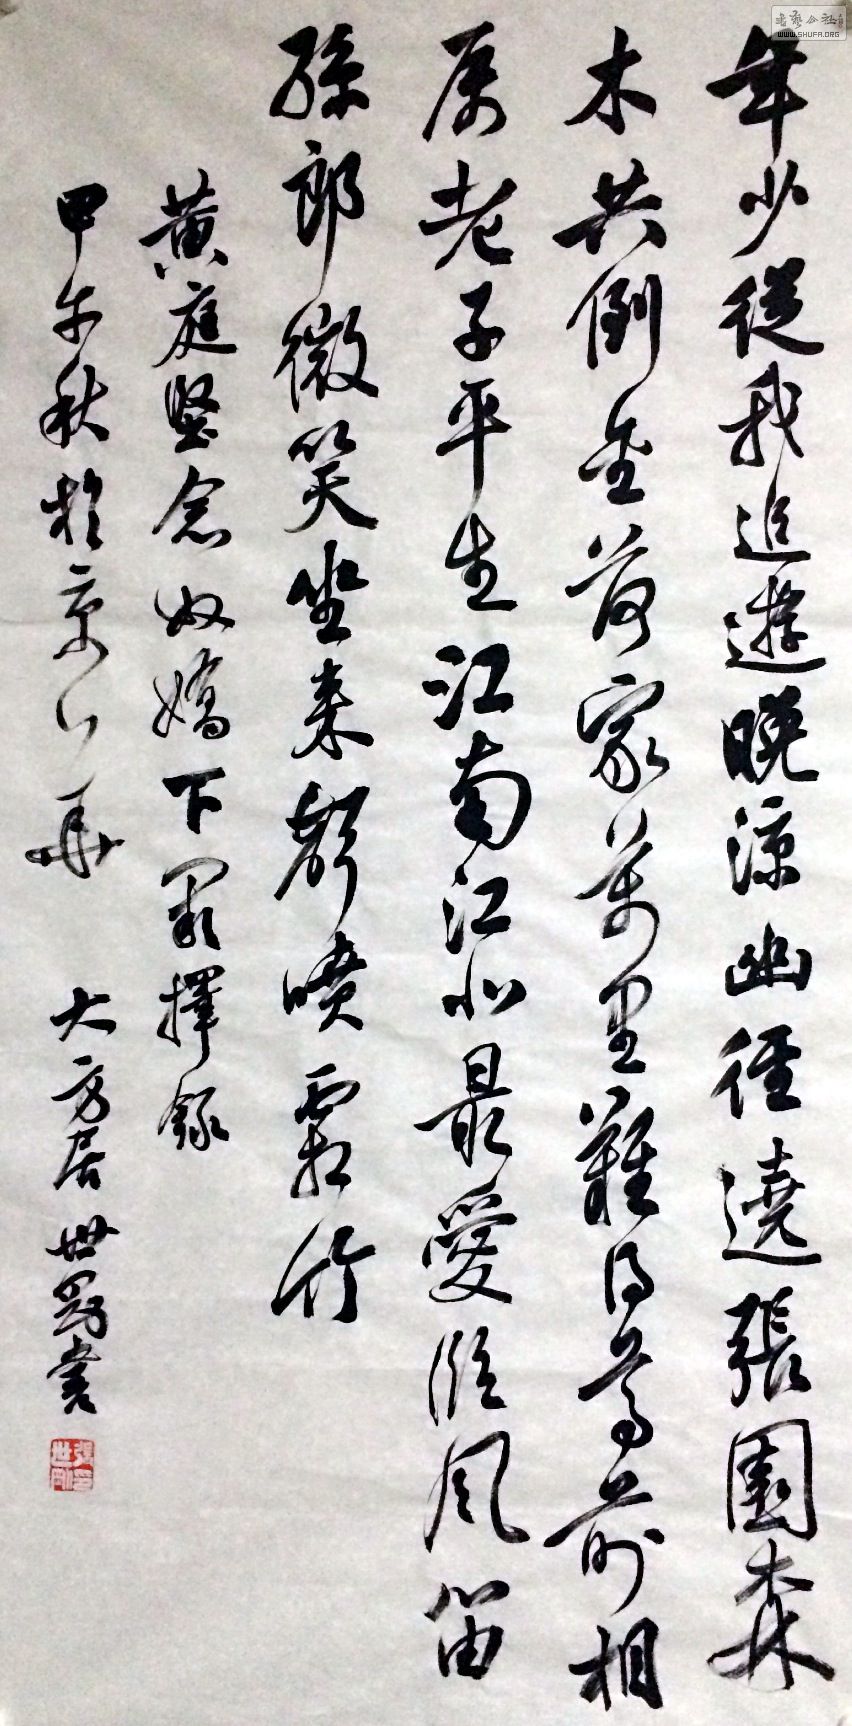 年少從我追遊晚涼幽徑遶張園森
木共倒金荷家萬里難得尊前相
属老子平生江南江北最愛臨風笛
孫郎微笑坐来聲噴霜竹
黄庭坚念奴嬌下阕擇錄
甲午秋於京華
大方居世剛書
張世剛印
書藝公社
WWW.SHUFA.ORG